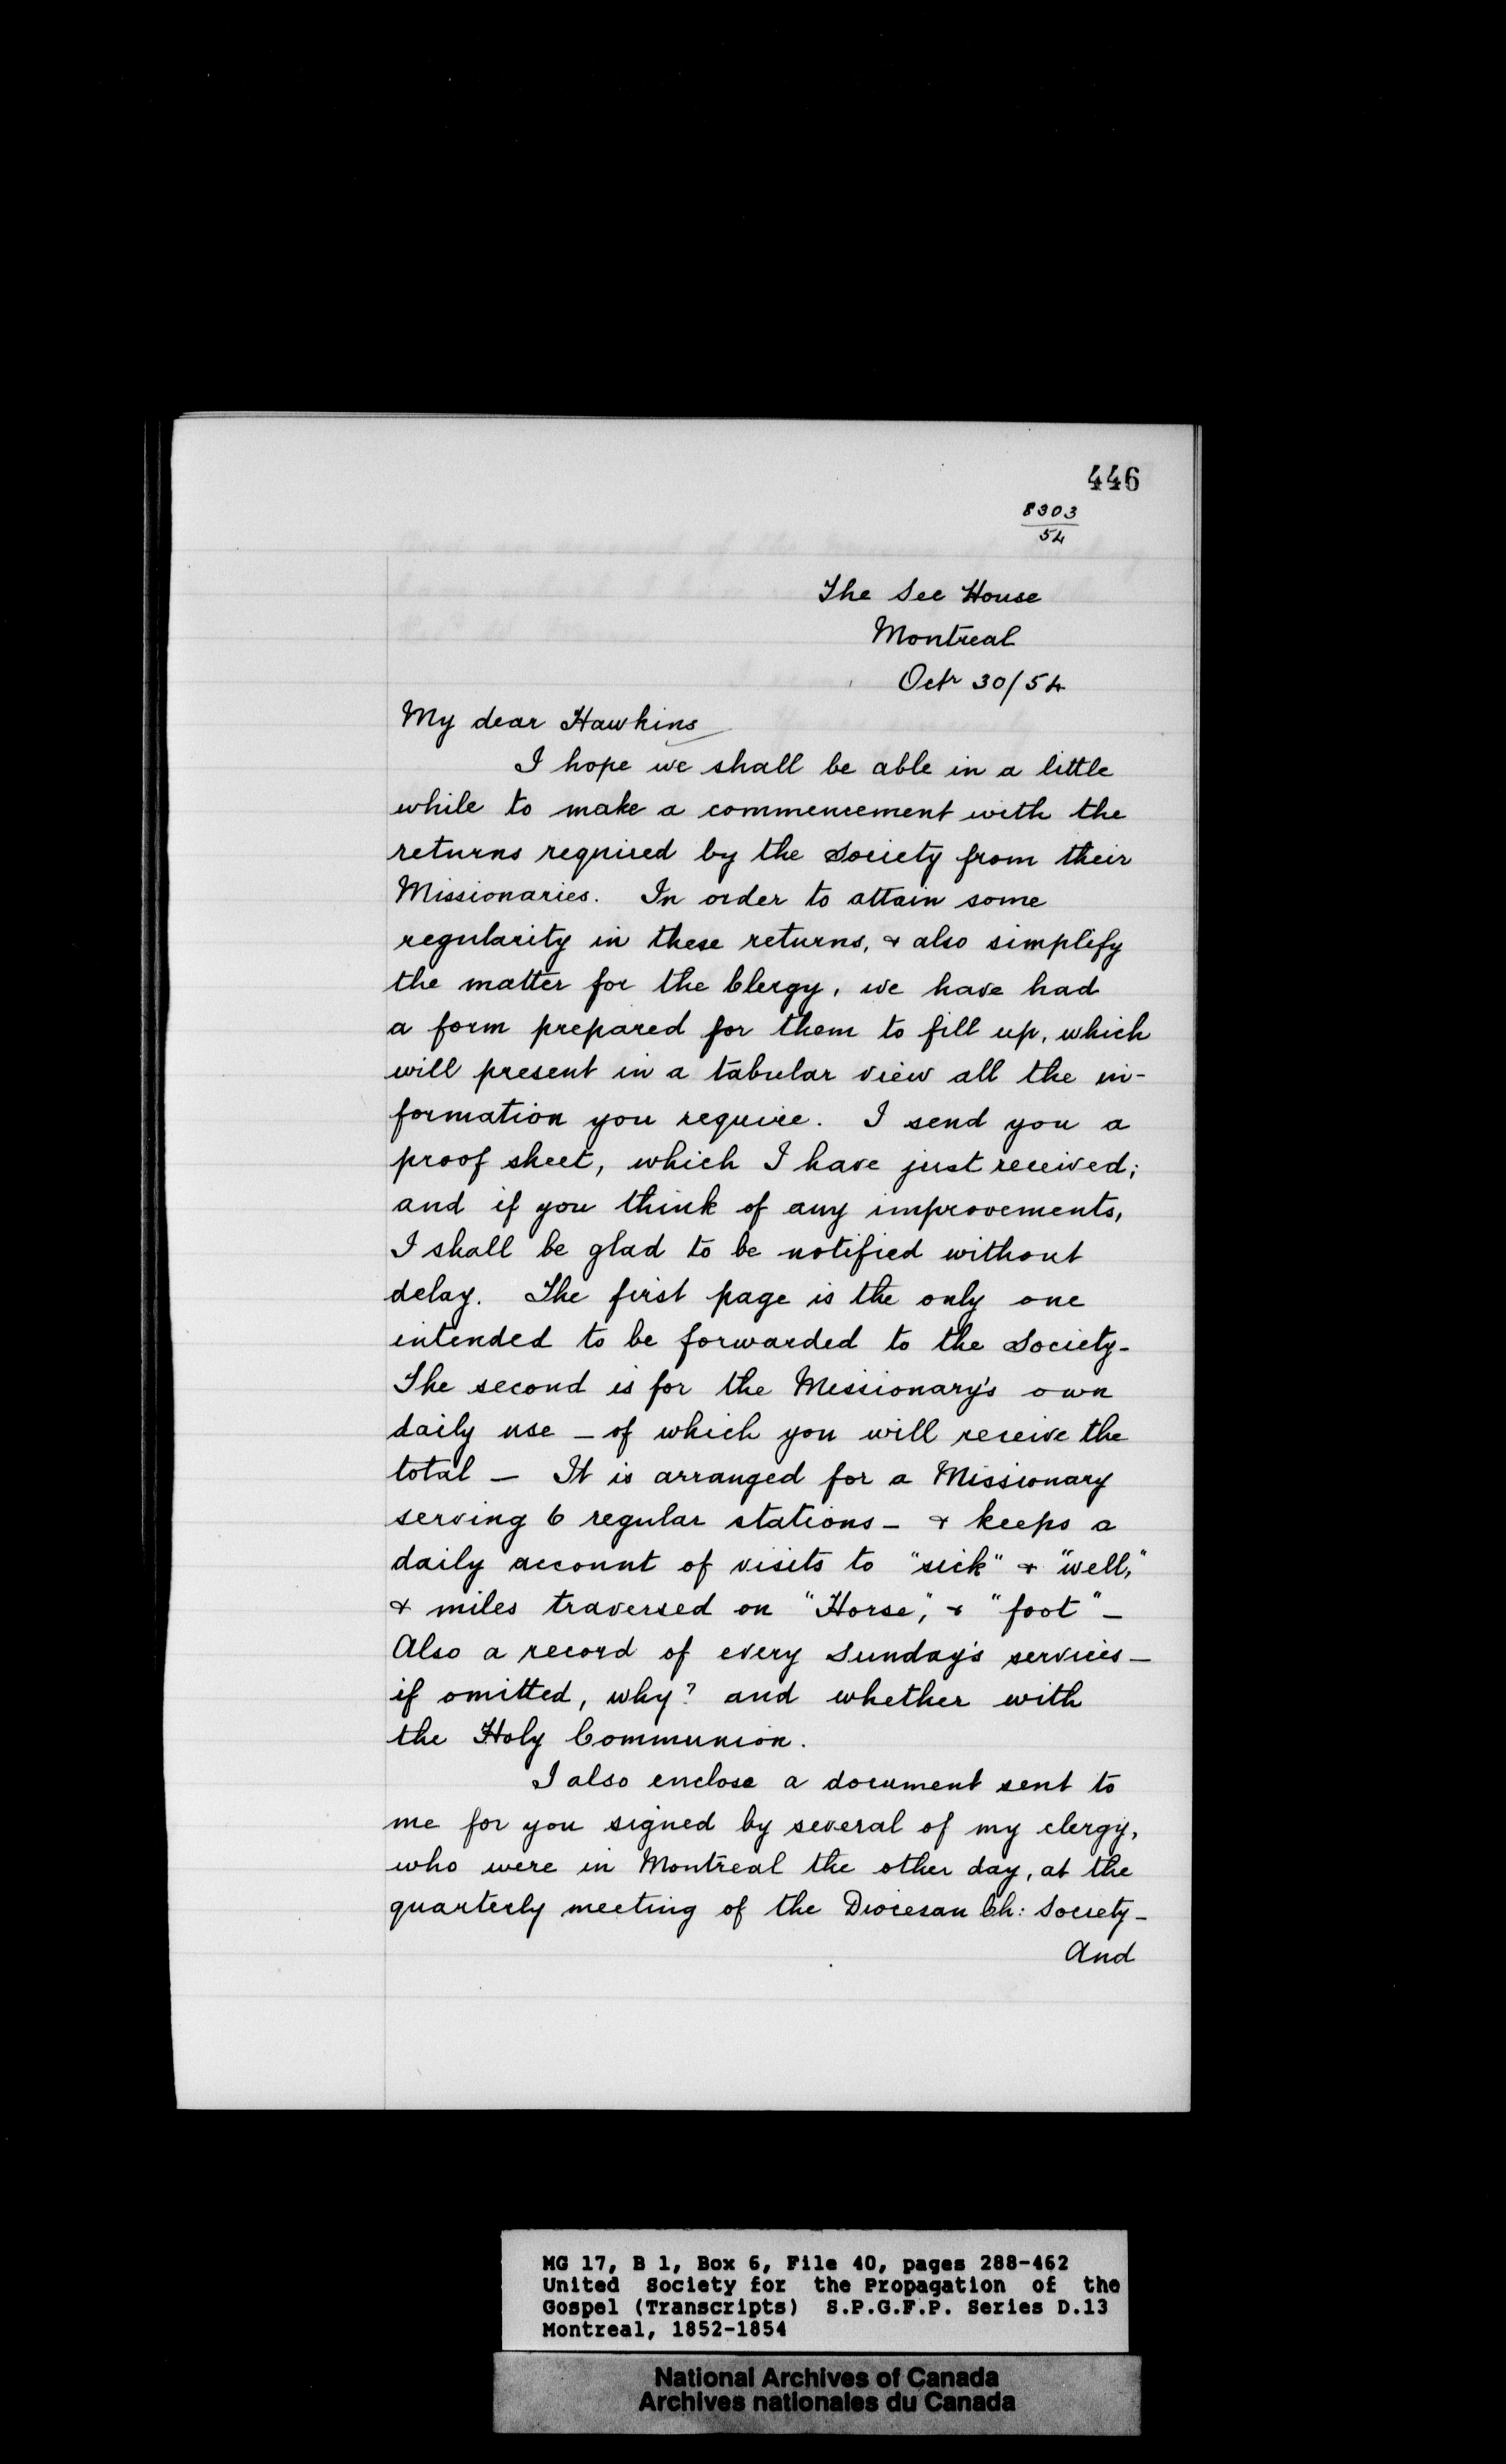 446
8303
54
The See House
Montreal
Octr 30/54
My dear Hawkins
I hope we shall be able in a little
while to make a commencement with the
returns required by the Society from their
Missionaries. In order to attain some
regularity in these returns, & also simplify
the matter for the Clergy, we have had
a form prepared for them to fill up, which
will present in a tabular view all the in-
formation you require. I send you a
proof sheet, which I have just received;
and if you think of any improvements,
I shall be glad to be notified without
delay. The first page is the only one
intended to be forwarded to the Society-
The second is for the Missionary's own
daily use - of which you will receive the
total - It is arranged for a Missionary
serving 6 regular stations - & keeps a
daily account of visits to "sick" & "well,"
& miles traversed on "Horse", & "foot" -
Also a record of every Sunday's services -
if omitted, why? and whether with
the Holy Communion.
I also enclose a document sent to
me for you signed by several of my clergy,
who were in Montreal the other day, at the
quarterly meeting of the Diocesan Ch: Society -
And
MG 17, B 1, Box 6, File 40, pages 288-462
United Society for the Propagation of the
Gospel (Transcripts) S.P.G.F.P. Series D.13
Montreal, 1852-1854
National Archives of Canada
Archives nationales du Canada